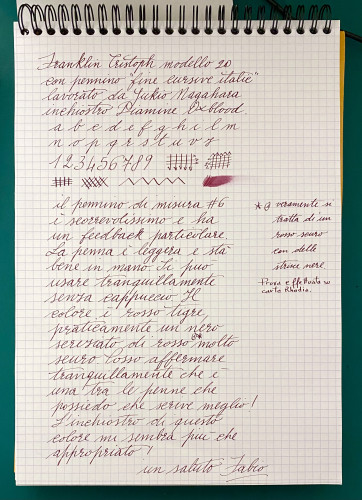 Franklin Cristoph modello 20
con pennino "fine cursive italic"
lavorato da Yukio Nagahara
inchiostro Diamine Oxblood.
a b c d e f g h i l m
n o p q r s t u v z
1 2 3 4 5 6 7 8 9
il pennino di misura #6
è scorrevolissimo e ha
un feedback particolare.
La penna è leggera e stà
bene in mano. Si può
usare tranquillamente
senza cappuccio. Il
colore è rosso tigre,
praticamente un nero
screziato di rosso molto
scuro. Posso affermare
tranquillamente che è
una tra le penne che
possiedo che scrive meglio!
L'inchiostro di questo
colore mi sembra più che
appropriato!
un saluto Fabio
* veramente si
tratta di un
rosso scuro
con delle
strice nere.
Prova effettuata su
carta Rhodia.